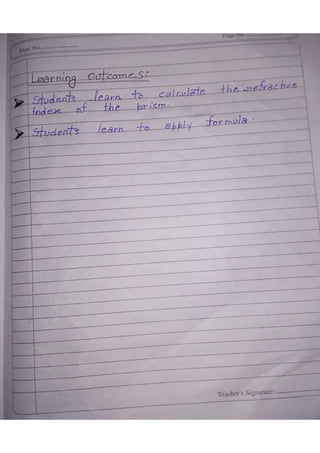 Page No.
Expt. No.
Learning Outcomes:
➤ Students learn to calculate the refractive
index of the prism.
➤ Students learn to apply formula.
Teacher's Signature: